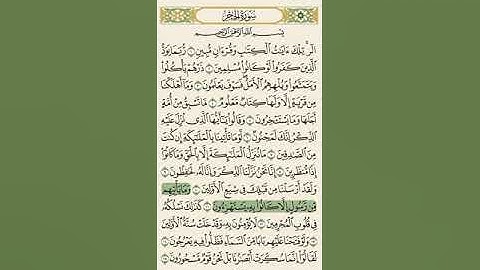 سُورَةُ الحِجْرِ
بِسْمِ اللَّهِ الرَّحْمَٰنِ الرَّحِيمِ
الٓرۚ تِلْكَ ءَايَٰتُ ٱلْكِتَٰبِ وَقُرْءَانٍ مُّبِينٍ ١ رُّبَمَا يَوَدُّ
ٱلَّذِينَ كَفَرُوا۟ لَوْ كَانُوا۟ مُسْلِمِينَ ٢ ذَرْهُمْ يَأْكُلُوا۟
وَيَتَمَتَّعُوا۟ وَيُلْهِهِمُ ٱلْأَمَلُۖ فَسَوْفَ يَعْلَمُونَ ٣ وَمَآ أَهْلَكْنَا
مِن قَرْيَةٍ إِلَّا وَلَهَا كِتَابٌ مَّعْلُومٌ ٤ مَّا تَسْبِقُ مِنْ أُمَّةٍ
أَجَلَهَا وَمَا يَسْتَـْٔخِرُونَ ٥ وَقَالُوا۟ يَٰٓأَيُّهَا ٱلَّذِى نُزِّلَ عَلَيْهِ
ٱلذِّكْرُ إِنَّكَ لَمَجْنُونٌ ٦ لَّوْ مَا تَأْتِينَا بِٱلْمَلَٰٓئِكَةِ إِن كُنتَ
مِنَ ٱلصَّٰدِقِينَ ٧ مَا نُنَزِّلُ ٱلْمَلَٰٓئِكَةَ إِلَّا بِٱلْحَقِّ وَمَا كَانُوٓا۟
إِذًا مُّنظَرِينَ ٨ إِنَّا نَحْنُ نَزَّلْنَا ٱلذِّكْرَ وَإِنَّا لَهُۥ لَحَٰفِظُونَ ٩
وَلَقَدْ أَرْسَلْنَا مِن قَبْلِكَ فِى شِيَعِ ٱلْأَوَّلِينَ ١٠ وَمَا يَأْتِيهِم
مِّن رَّسُولٍ إِلَّا كَانُوا۟ بِهِۦ يَسْتَهْزِءُونَ ١١ كَذَٰلِكَ نَسْلُكُهُۥ
فِى قُلُوبِ ٱلْمُجْرِمِينَ ١٢ لَا يُؤْمِنُونَ بِهِۦۖ وَقَدْ خَلَتْ سُنَّةُ ٱلْأَوَّلِينَ
١٣ وَلَوْ فَتَحْنَا عَلَيْهِم بَابًا مِّنَ ٱلسَّمَآءِ فَظَلُّوا۟ فِيهِ يَعْرُجُونَ ١٤
لَقَالُوٓا۟ إِنَّمَا سُكِّرَتْ أَبْصَٰرُنَا بَلْ نَحْنُ قَوْمٌ مَّسْحُورُونَ ١٥